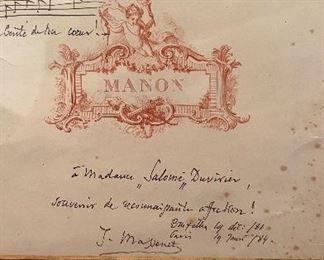 Conté de ton cœur!...
MANON
à Madame „Salomé„ Duvivier,
souvenir de reconnaissante affection!
Bruxelles 19 déc. /81
Paris 19 /84.
J. Massenet